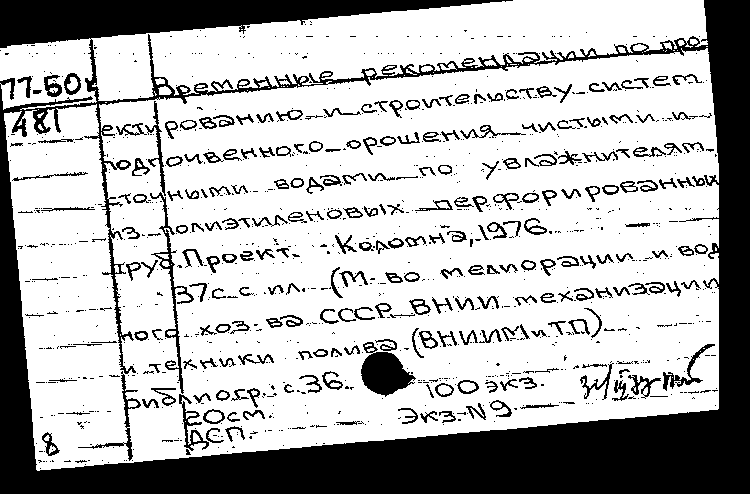 77-50к Временные рекомендации по про-
481 ектированию и строительству систем
подпочвенного орошения чистыми и
сточными водами по увлажнителям
из полиэтиленовых перфорированных
труб. Проект. : Коломна, 1976.
37с. с ил. (М-во мелиорации и вод
ного хоз-ва СССР. ВНИИ механизации
и техники полива (ВНИИМиТП)
Библиогр.: с. 36. 100 экз.
20см. Экз. N 9
ДСП.
8